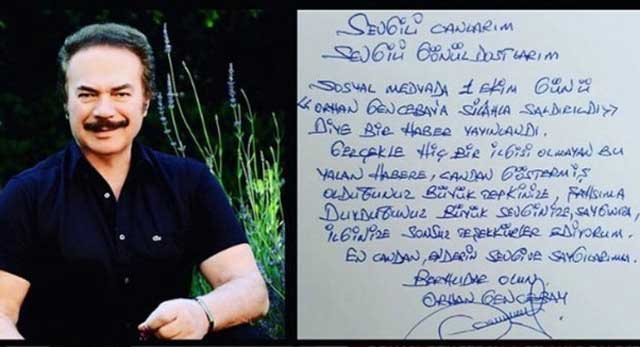 SEVGİLİ CANLARIM
SEVGİLİ GÖNÜL DOSTLARIM
SOSYAL MEDYADA 1 EKİM GÜNÜ
"ORHAN GENCEBAYA SİLAHLA SALDIRILDI"
DİYE BİR HABER YAYINLANDI.
GERÇEKLE HİÇ BİR İLGİSİ OLMAYAN BU
YALAN HABERE, CANDAN GÖSTERMİŞ
OLDUĞUNUZ BÜYÜK TEPKİNİZE, ŞAHSIMA
DUYDUĞUNUZ BÜYÜK SEVGİNİZE, SAYGINIZA,
İLGİNİZE SONSUZ TEŞEKKÜRLER EDİYORUM.
EN CANDAN, ENDERİN SEVGİ VE SAYGILARIMLA.
BERHUDAR OLUN.
ORHAN GENCEBAY